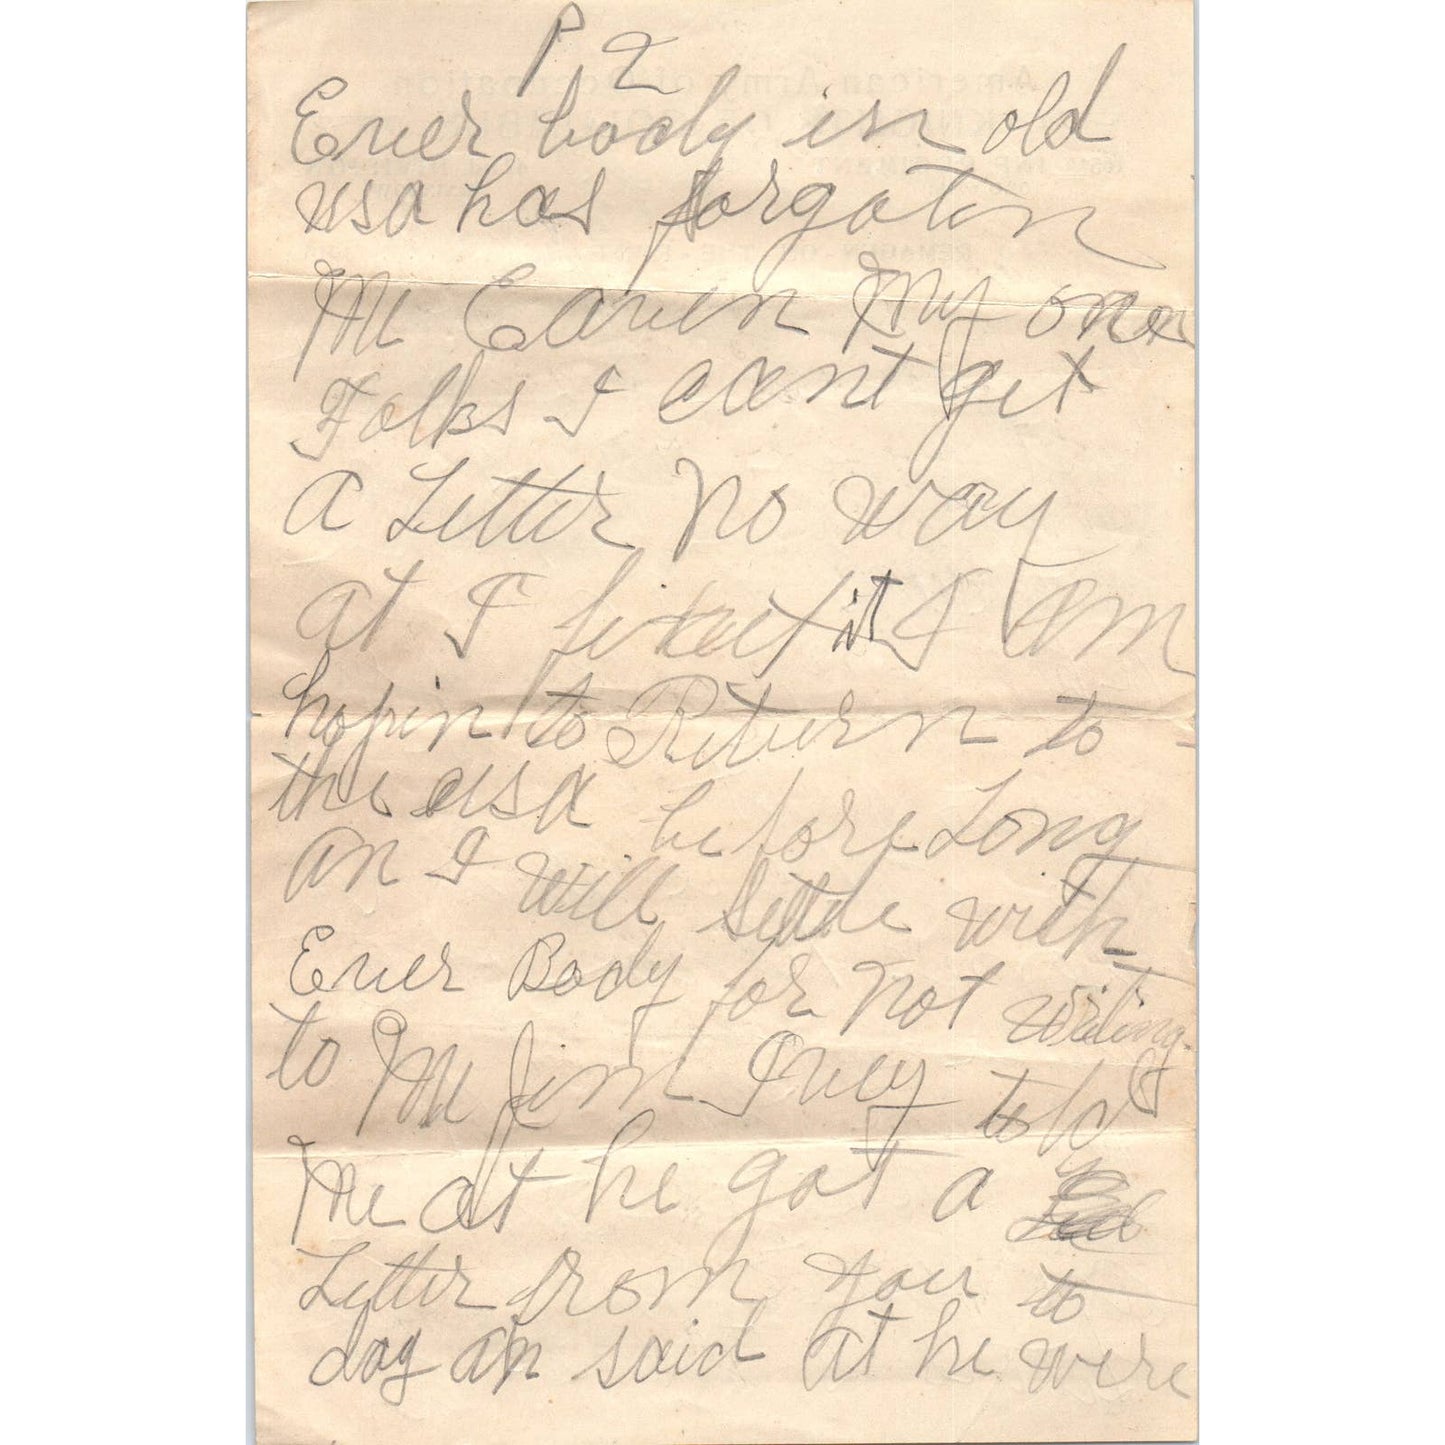 P 2
Ever body in old
usa has forgoten
Me Eaven My one
Folks I cant get
a Letter no way
at I it I am
hopin to Return to
the usa before Long
an I will settle with
Ever Body for not writing
to Me Jim Ivey told
Me at he got a
Letter from you to
day an said at he were